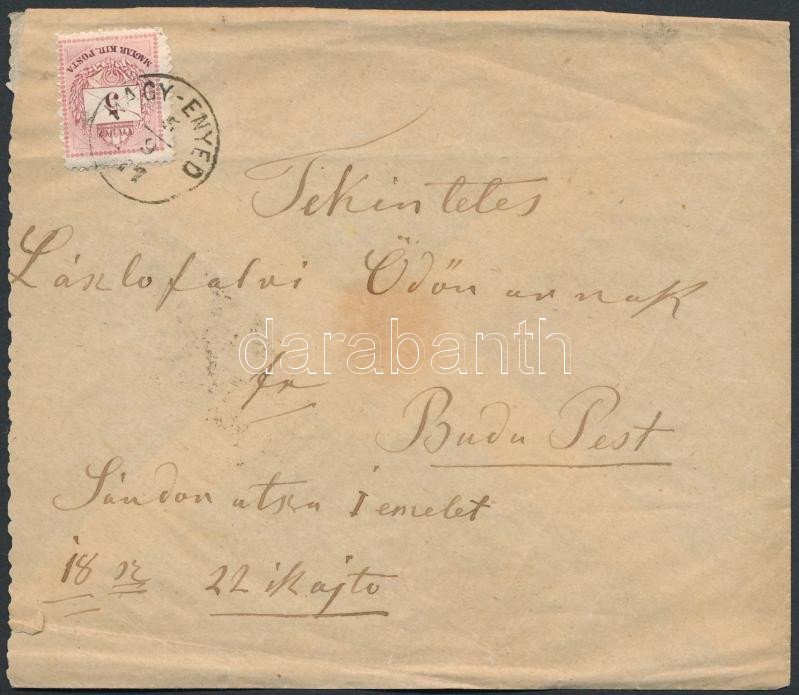 MAGYAR KIR. POSTA
5
NAGY-ENYED
Tekintetes
Lászlofalvi Ödön urnak
fr
Buda Pest
Sándor utsza I emelet
18 sz 22 ik ajto
darabanth